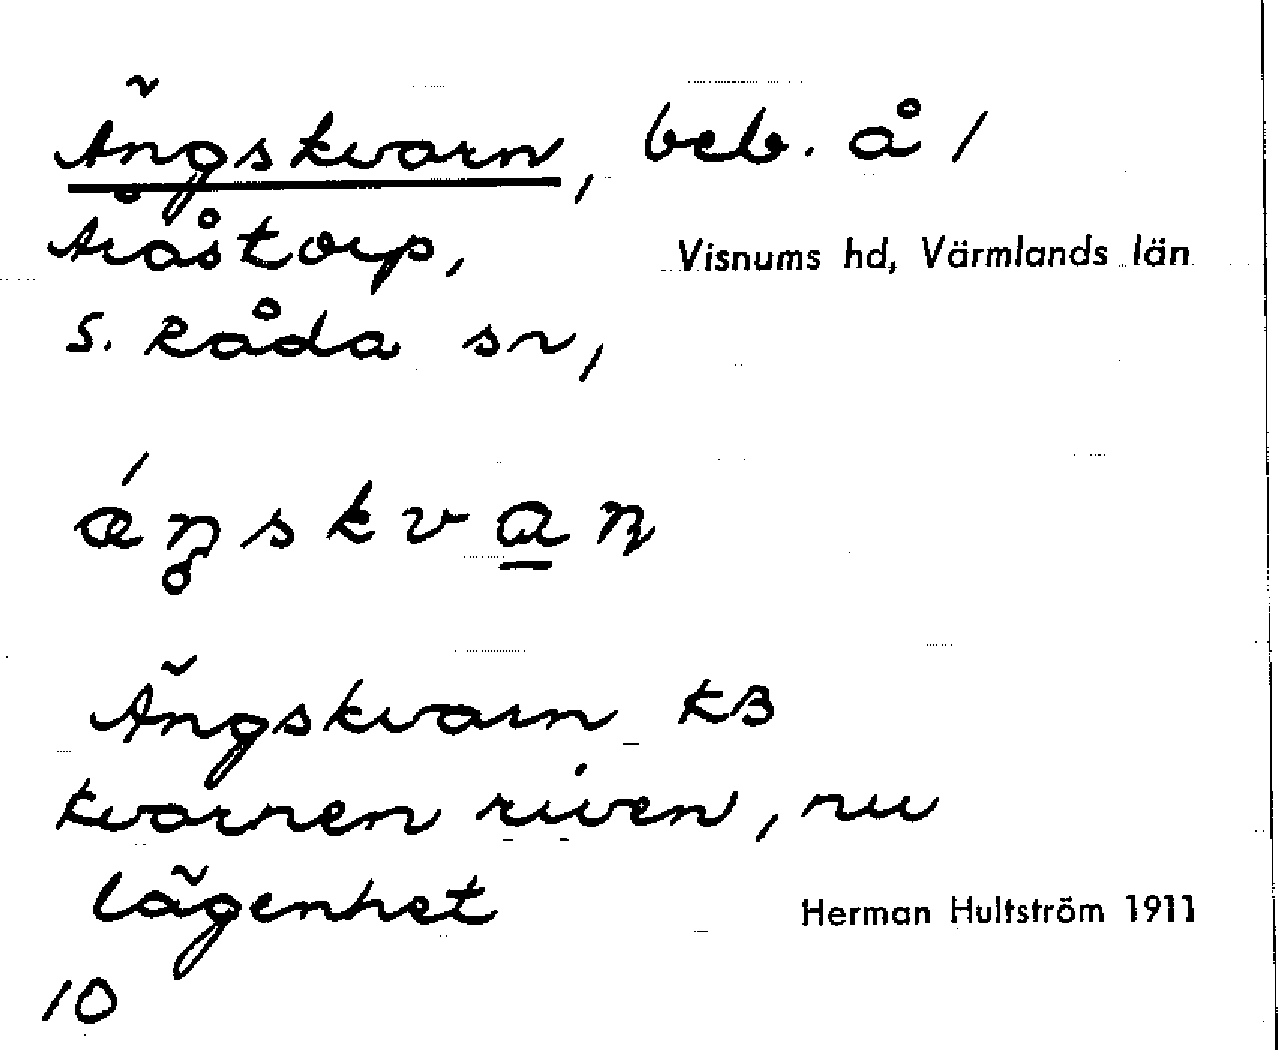 Ängskvarn, beb. å 1
Aråstorp,
Visnums hd, Värmlands län
S. Råda sn,
Ängskvarn KB
kvarnen riven, nu
lägenhet
Herman Hultström 1911
10